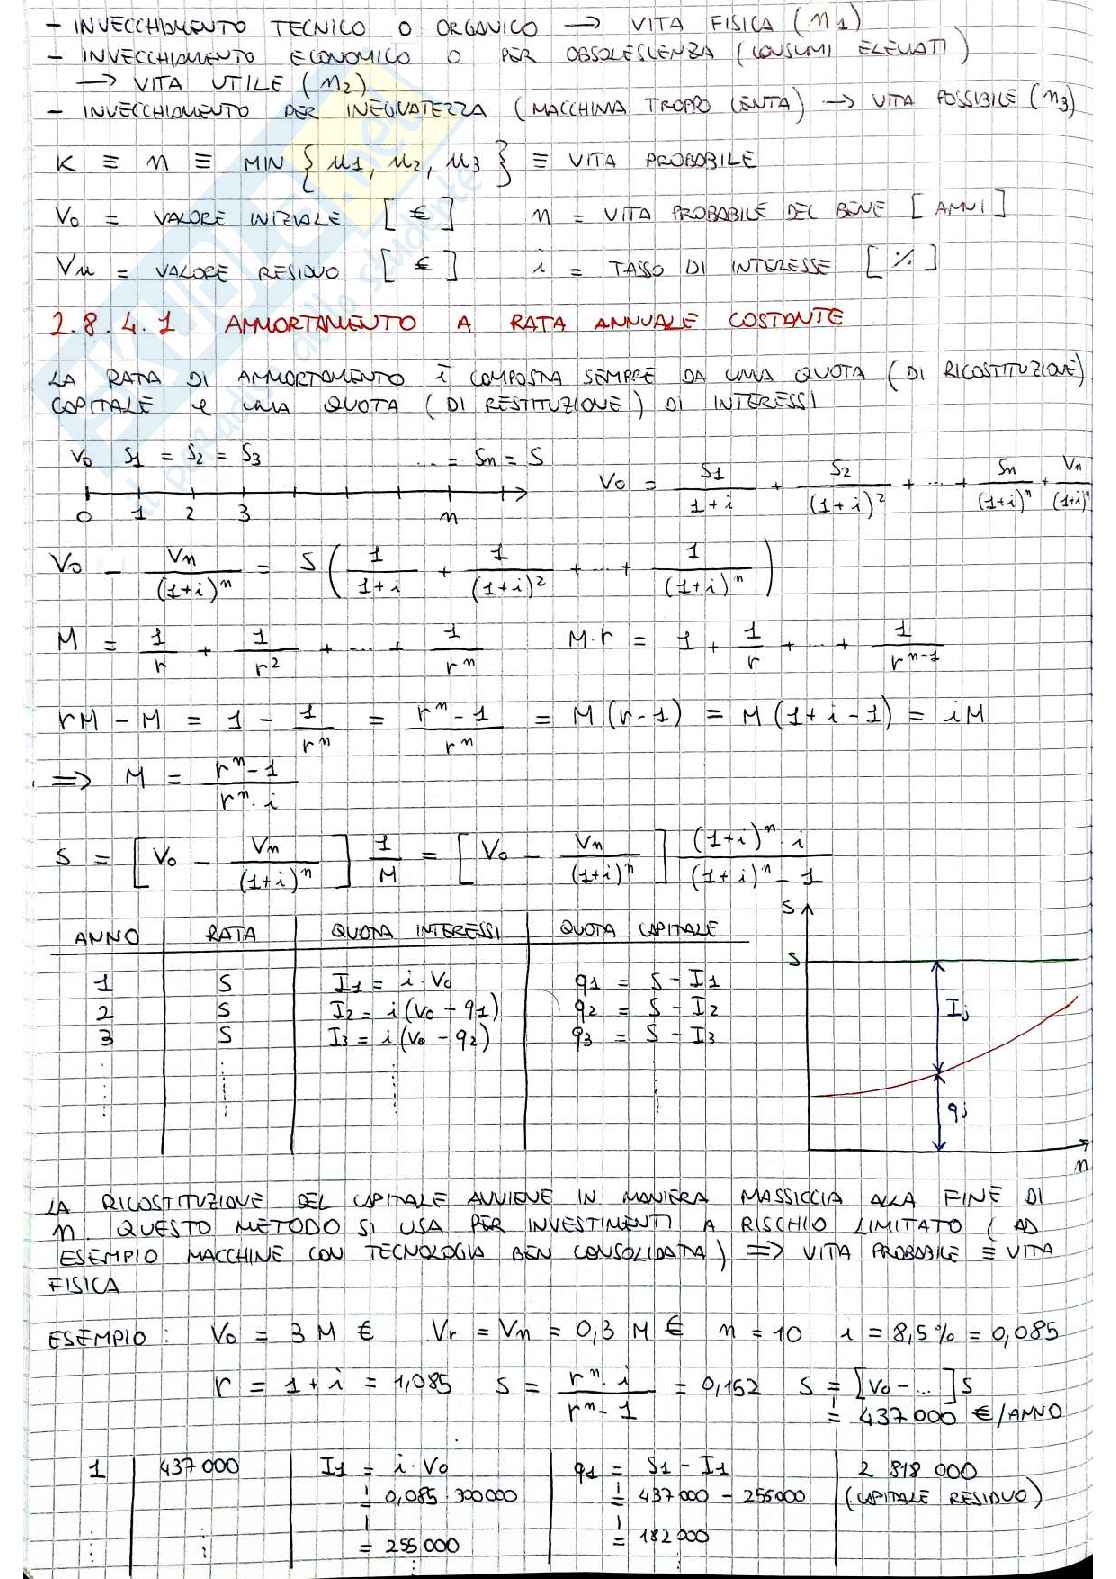 - INVECCHIAMENTO TECNICO O ORGANICO → VITA FISICA (n1)
- INVECCHIAMENTO ECONOMICO O PER OBSOLESCENZA (CONSUMI ELEVATI)
→ VITA UTILE (n2)
- INVECCHIAMENTO PER INEGUATEZZA (MACCHINA TROPPO LENTA) → VITA POSSIBILE (n3)
K ≡ n ≡ MIN {n1, n2, n3} ≡ VITA PROBABILE
V0 = VALORE INIZIALE [€] n = VITA PROBABILE DEL BENE [ANNI]
Vn = VALORE RESIDUO [€] i = TASSO DI INTERESSE [%]
2.8.4.1 AMMORTAMENTO A RATA ANNUALE COSTANTE
LA RATA DI AMMORTAMENTO È COMPOSTA SEMPRE DA UNA QUOTA (DI RICOSTITUZIONE)
CAPITALE e UNA QUOTA (DI RESTITUZIONE) DI INTERESSI
V0 S1 = S2 = S3 ... = Sn = S
0 1 2 3 n
V0 = S1/(1+i) + S2/(1+i)^2 + ... + Sn/(1+i)^n + Vn/(1+i)^n
V0 - Vn/(1+i)^n = S (1/(1+i) + 1/(1+i)^2 + ... + 1/(1+i)^n)
M = 1/r + 1/r^2 + ... + 1/r^n M·r = 1 + 1/r + ... + 1/r^(n-1)
rM - M = 1 - 1/r^n = (r^n - 1)/r^n = M(r-1) = M(1+i-1) = iM
⇒ M = (r^n - 1)/(r^n · i)
S = [V0 - Vn/(1+i)^n] 1/M = [V0 - Vn/(1+i)^n] ((1+i)^n · i)/((1+i)^n - 1)
ANNO RATA QUOTA INTERESSI QUOTA CAPITALE
1 S I1 = i·V0 q1 = S - I1
2 S I2 = i(V0 - q1) q2 = S - I2
3 S I3 = i(V0 - q2) q3 = S - I3
S
S
Ij
qj
n
LA RICOSTITUZIONE DEL CAPITALE AVVIENE IN MANIERA MASSICCIA ALLA FINE DI
n. QUESTO METODO SI USA PER INVESTIMENTI A RISCHIO LIMITATO (AD
ESEMPIO MACCHINE CON TECNOLOGIA BEN CONSOLIDATA) ⇒ VITA PROBABILE ≡ VITA
FISICA
ESEMPIO: V0 = 3 M € Vr = Vn = 0,3 M € n = 10 i = 8,5% = 0,085
r = 1+i = 1,085 S = (r^n · i)/(r^n - 1) = 0,152 S = [V0 - ...] S
= 437000 €/ANNO
1 437000 I1 = i·V0 q1 = S1 - I1 2 818 000
= 0,085·300000 = 437000 - 255000 (CAPITALE RESIDUO)
= 255000 = 182000